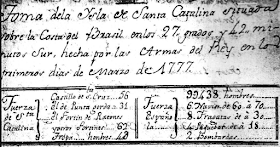 Toma dela Ysla de Santa Catalina situada
sobre la Costa del Brasil en los 27 grados y 42 mi
nutos Sur, hecha por las Armas del Rey en los
primeros dias de Marzo de 1777.
Fuerza de Sta Catalina
Castillo de S. Cruz 56
El de Punta gorda 31
El Fortin de Ratones
y otros Fortines 62
Tropa, hombres 40
Fuerza Española
99438 hombres
6 Navios de 60 a 70
8 Fragatas de 20 a 30
4 de 18
2 Bombardas